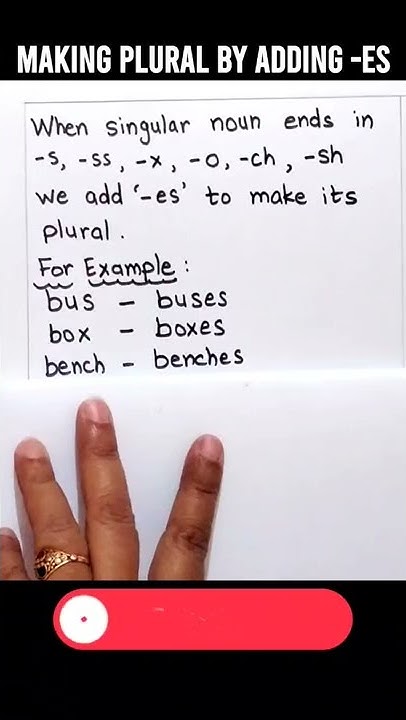 MAKING PLURAL BY ADDING -ES
When singular noun ends in
-s, -ss, -x, -o, -ch, -sh
we add '-es' to make its
plural.
For Example:
bus - buses
box - boxes
bench - benches